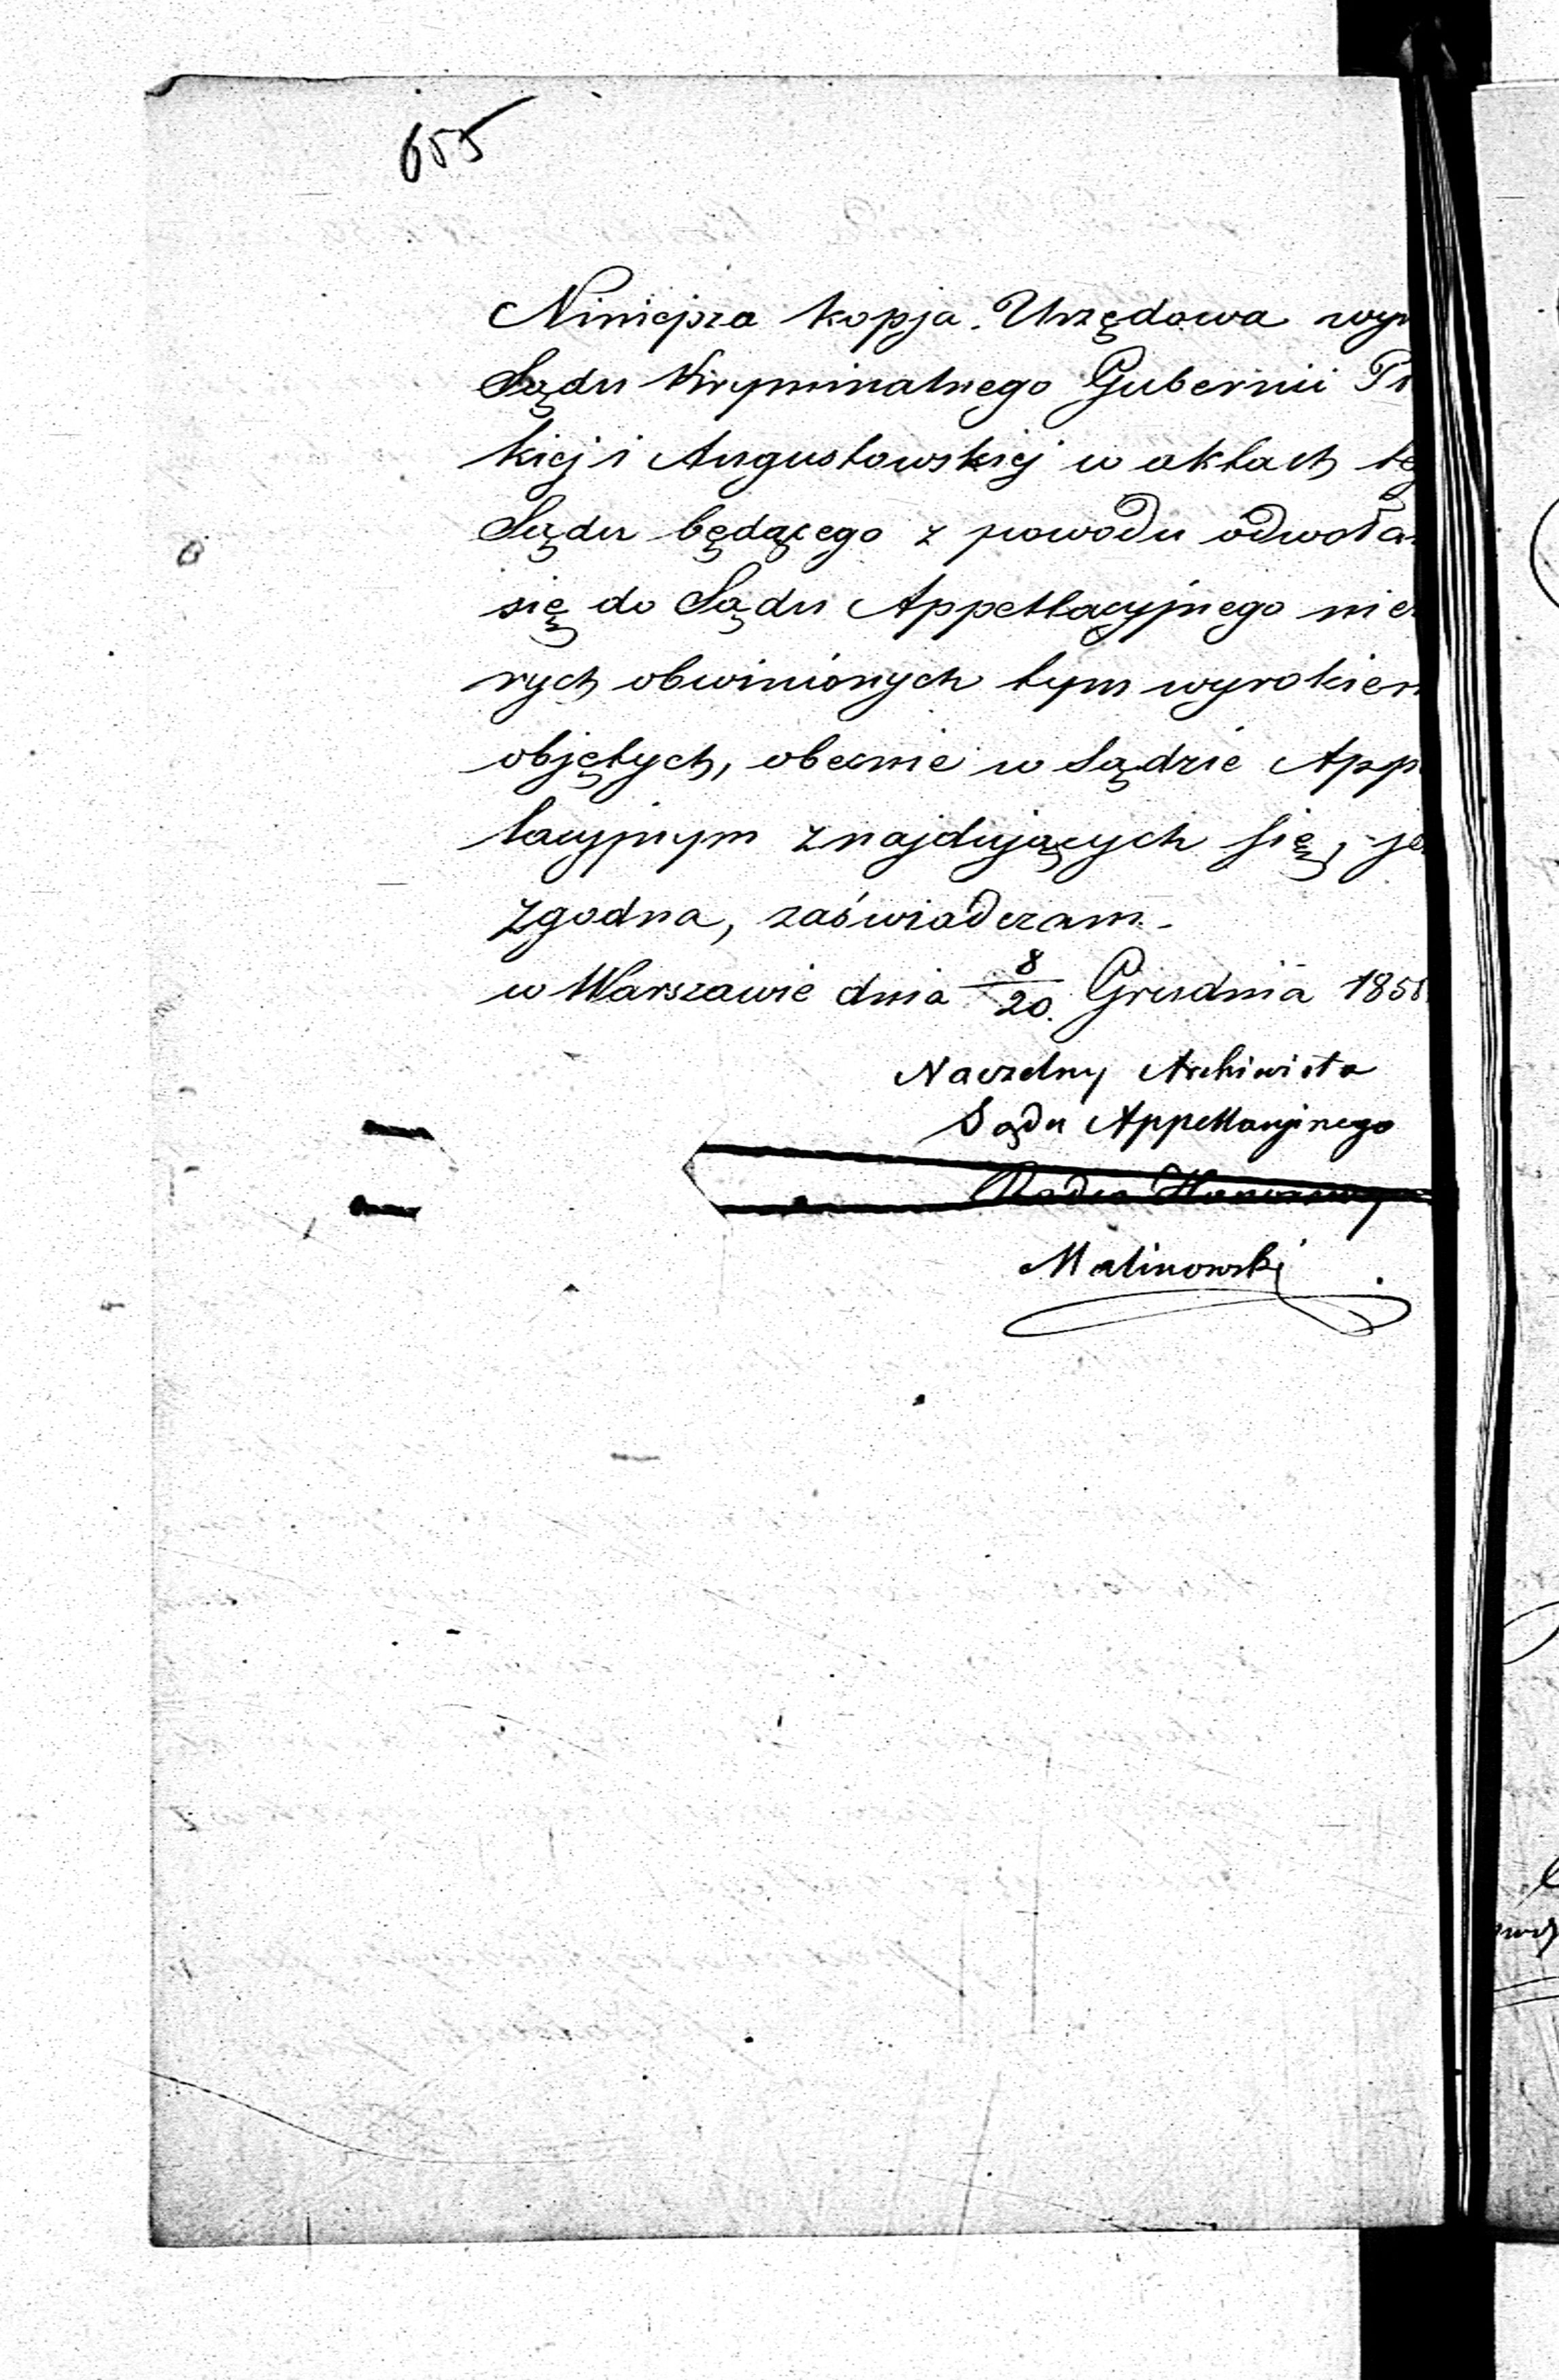 655
Niniejsza kopja Urzędowa wyr
Sądu Kryminalnego Gubernii Pł
kiej i Augustowskiej w aktach te
Sądu będącego z powodu odwoła
się do Sądu Appellacyjnego nie
rych obwinionych tym wyrokiem
objętych, obecnie w Sądzie App
lacyjnym znajdujących się, je
zgodna, zaświadczam.
w Warszawie dnia 8/20. Grudnia 185
Naczelny Archiwista
Sądu Appellacyjnego
Radca
Malinowski